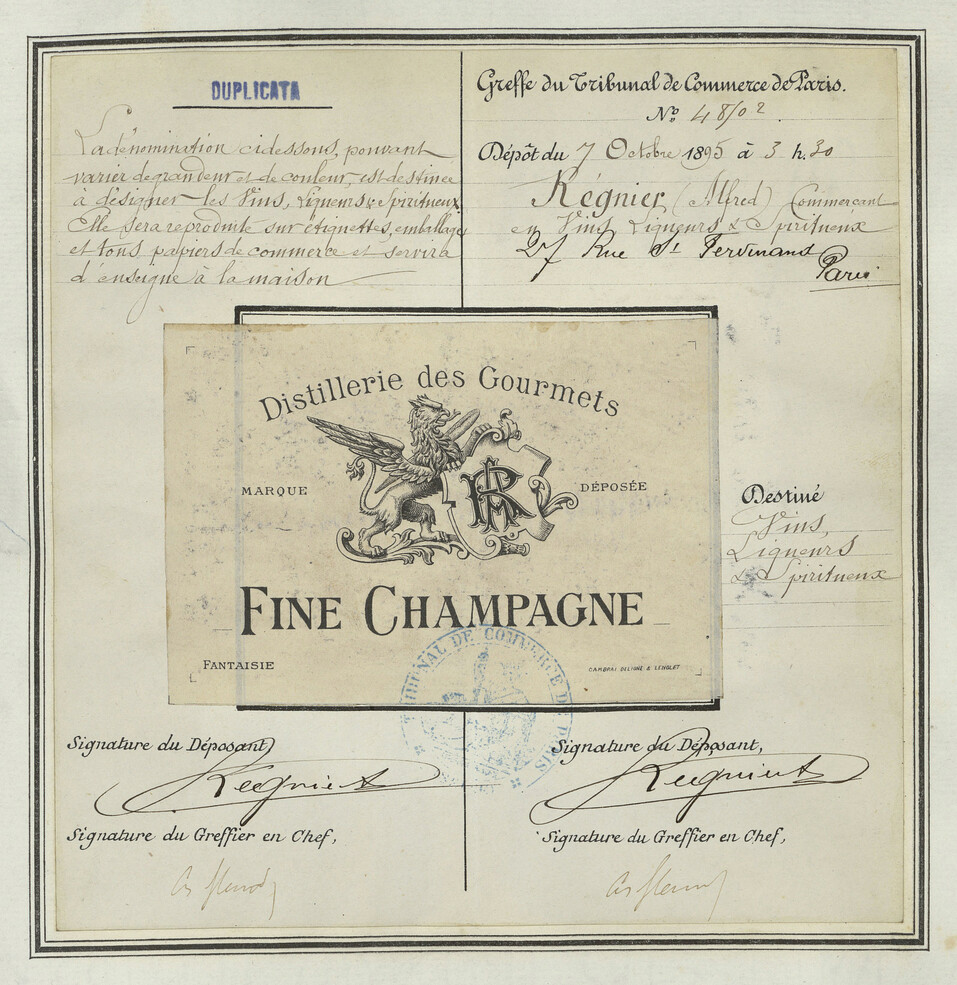 DUPLICATA
La dénomination cidessous, pouvant
varier de grandeur et de couleur, est destinée
à désigner les Vins, Liqueurs & Spiritueux.
Elle sera reproduite sur étiquettes, emballages
et tous papiers de commerce et servira
d'enseigne à la maison
Greffe du Tribunal de Commerce de Paris.
N° 48102.
Dépôt du 7 Octobre 1895 à 3 h. 30
Régnier (Alfred) Commerçant
en Vins, Liqueurs & Spiritueux
27 Rue St Ferdinand
Paris
Distillerie des Gourmets
MARQUE DÉPOSÉE
FINE CHAMPAGNE
FANTAISIE
CAMBRAI DELIGNE & LENGLET
Destiné
Vins,
Liqueurs
& Spiritueux
TRIBUNAL DE COMMERCE DE PARIS
Signature du Déposant,
Signature du Greffier en Chef,
Signature du Déposant,
Signature du Greffier en Chef,